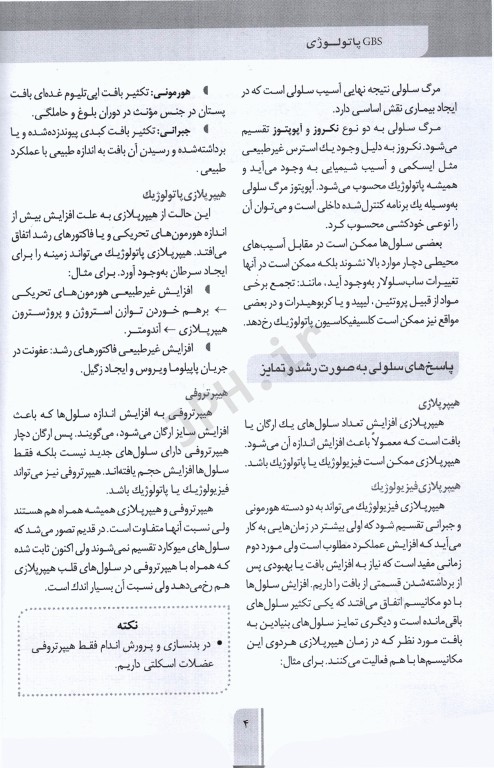 GBS پاتولـوژی
مرگ سلولی نتیجه نهایی آسیب سلولی است که در
ایجاد بیماری نقش اساسی دارد.
مـرگ سلولی به دو نوع نکـروز و آپوپتوز تقسیم
می‌شود. نکـروز به دلیل وجود یک استرس غیرطبیعی
مثل ایسکمی و آسیب شیمیایی به وجود می‌آید و
همیشه پاتولوژیک محسوب می‌شود. آپوپتوز مرگ سلولی
به‌وسیله یک برنامه کنترل‌شده داخلی است و می‌توان آن
را نوعی خودکشی محسوب کـرد.
بعضـی سلول‌ها ممکن است در مقابل آسیب‌های
محیطی دچار موارد بالا نشوند بلکه ممکن است در آنها
تغییرات ساب‌سلولار به‌وجود آید، مانند: تجمع برخی
مواد از قبیل پروتئین، لیپید و یا کربوهیدرات و در بعضی
مواقع نیز ممکن است کلسیفیکاسیون پاتولوژیک رخ‌دهد.
پاسخ‌های سلولی به صورت رشد و تمایز
هیپرپلازی
هیپرپلازی افزایش تعداد سلول‌های یک ارگان یا
بافت است که معمولاً باعث افزایش اندازه آن می‌شود.
هیپرپلازی ممکن است فیزیولوژیک یا پاتولوژیک باشد.
هیپرپلازی فیزیولوژیک
هیپـرپلازی فیزیولوژیک می‌تواند به دو دسته هورمونی
و جبرانـی تقسیم شود که اولی بیشتر در زمان‌هایی به کار
می‌آید کـه افزایش عملکـرد مطلوب است ولی مورد دوم
زمانـی مفید است که نیاز به افزایش بافت یا بهبودی پس
از برداشته‌شدن قسمتی از بافت را داریم. افزایش سلول‌ها
با دو مکانیسم اتفاق می‌افتـد که یکـی تکثیر سلول‌های
باقی‌مانده است و دیگـری تمایز سلول‌های بنیادین به
بافت مورد نظر کـه در زمان هیپرپلازی هـردوی ایـن
مکانیسم‌ها با هـم فعالیت می‌کنند. بـرای مثال:
هورمونـی: تکثیـر بافت اپی‌تلیـوم غده‌ای بافت
پستان در جنس مؤنـث در دوران بلـوغ و حاملگـی.
جبرانـی: تکثیر بافت کبدی پیوندزده‌شده و یا
برداشته‌شده و رسیدن آن بافت به اندازه طبیعی با عملکرد
طبیعی.
هیپرپلازی پاتولوژیک
ایـن حالت از هیپـرپلازی بـه علـت افزایـش بیـش از
اندازه هورمون‌های تحریکی و یا فاکتورهای رشد اتفاق
می‌افتـد. هیپـرپلازی پاتولوژیک می‌توانـد زمینه را برای
ایجاد سرطان به‌وجود آورد. برای مثال:
افزایـش غیرطبیعـی هورمون‌هـای تحریکـی
← برهـم خـوردن تـوازن استـروژن و پروژسـترون
هیپرپـلازی ← آندومتـر.
افزایش غیرطبیعی فاکتورهای رشد: عفونت در
جریان پاپیلوما ویـروس و ایجـاد زگیل.
هیپرتروفی
هیپرتروفـی به افزایـش اندازه سلول‌ها کـه باعث
افزایـش سـایز ارگان می‌شود، می‌گویند. پـس ارگان دچار
هیپرتروفی دارای سلول‌های جدید نیست بلکـه فقـط
سلول‌ها افزایش حجـم یافته‌اند. هیپرتروفی نیـز می‌تواند
فیزیولوژیک یا پاتولوژیک باشد.
هیپرتروفی و هیپرپلازی همیشه همراه هم هستند
ولـی نسبت آنها متفاوت است. در قدیم تصور می‌شد که
سلول‌های میوکارد تقسیم نمی‌شوند ولی اکنون ثابت شده
که همـراه با هیپرتروفی در سلول‌های قلب هیپرپلازی
هـم رخ می‌دهد ولی نسبت آن بسیار اندك است.
نکته
• در بدنسازی و پـرورش انـدام فقـط هیپرتروفـی
عضـلات اسکلتی داریـم.
۴
JPH.ir